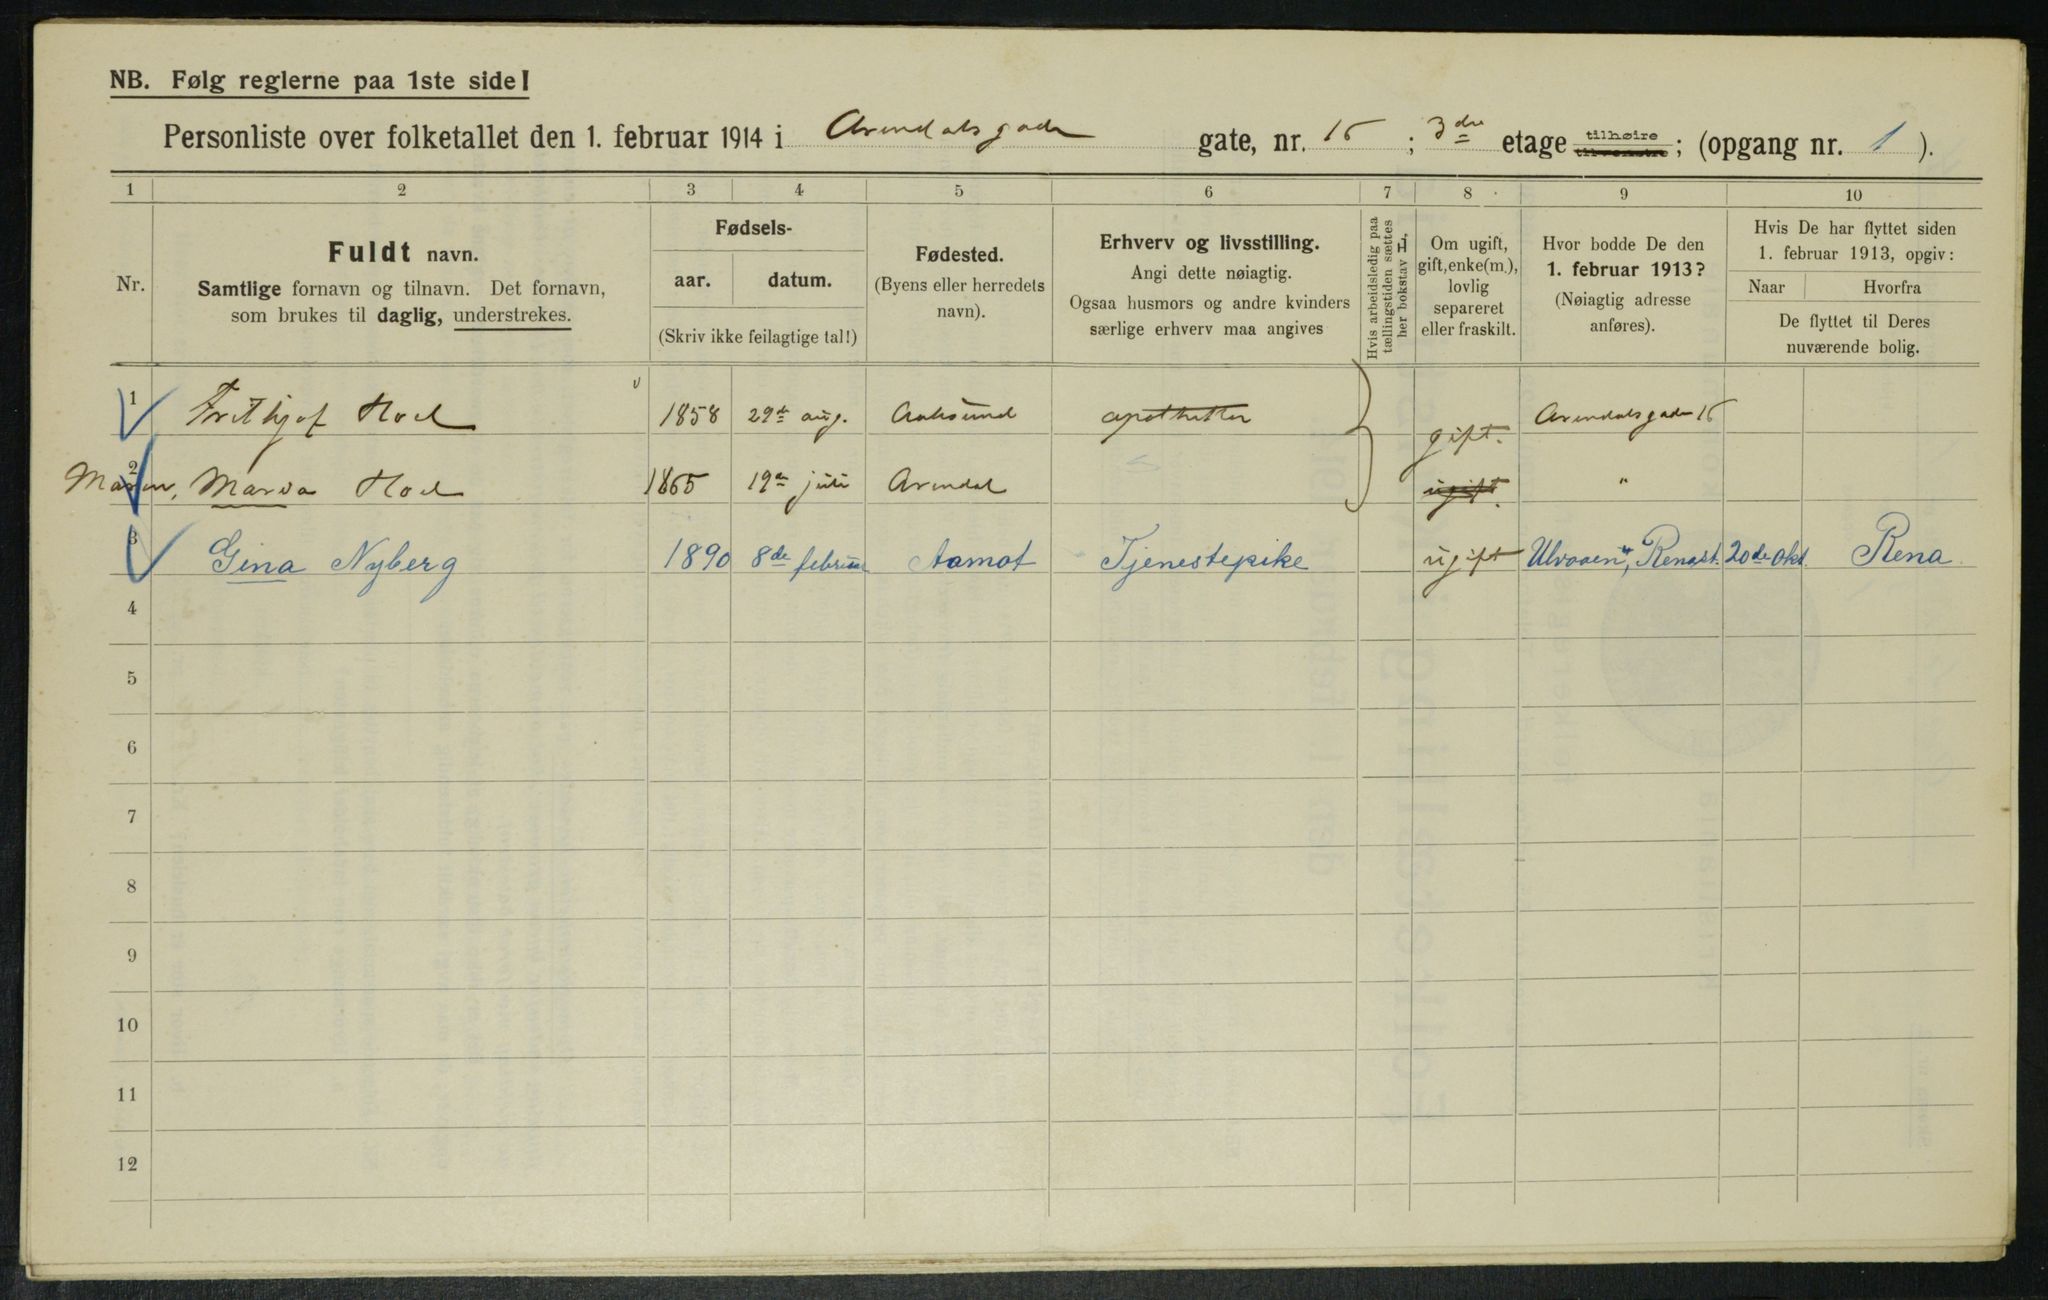 NB. Følg reglerne paa 1ste side!
Personliste over folketallet den 1. februar 1914 i Arendalsgade gate, nr. 15; 3die etage tilhøire tilvenstre; (opgang nr. 1).
1 2 3 4 5 6 7 8 9 10
Nr.
Fuldt navn.
Samtlige fornavn og tilnavn. Det fornavn,
som brukes til daglig, understrekes.
Fødsels-
aar. datum.
(Skriv ikke feilagtige tal!)
Fødested.
(Byens eller herredets
navn).
Erhverv og livsstilling.
Angi dette nøiagtig.
Ogsaa husmors og andre kvinders
særlige erhverv maa angives
Hvis arbeidsledig paa
tællingstiden sættes
her bokstav L,
Om ugift,
gift, enke(m.),
lovlig
separeret
eller fraskilt.
Hvor bodde De den
1. februar 1913?
(Nøiagtig adresse
anføres).
Hvis De har flyttet siden
1. februar 1913, opgiv:
Naar Hvorfra
De flyttet til Deres
nuværende bolig.
1 Frithjof Hoel 1858 29de aug. apotheker gift. Arendalsgade 15
2 Maren, Marva Hoel 1865 19de juli Arendal ugift. "
3 Gina Nyberg 1890 8de februar Aamot Tjenestepike ugift Ulvaaen, Renast. 20de okt. Rena
4
5
6
7
8
9
10
11
12